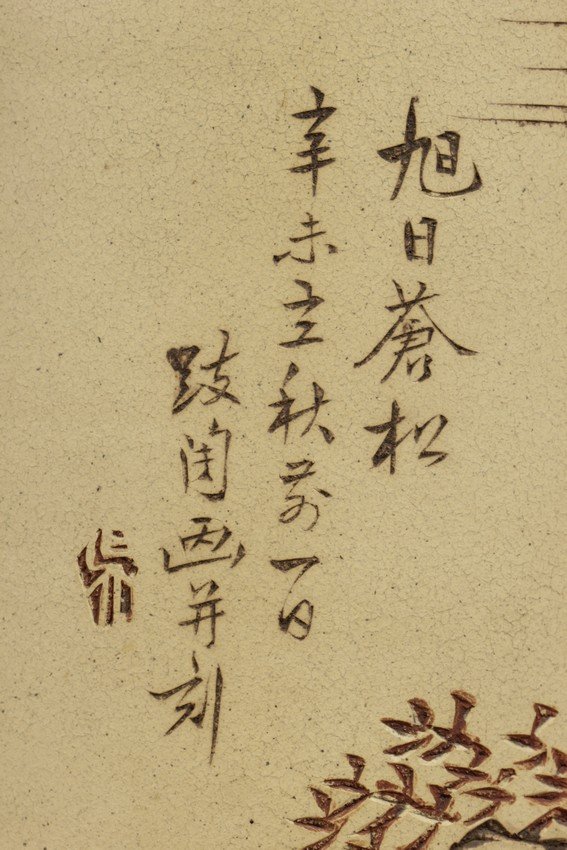 旭日蒼松
辛未立秋前一日
跂陶画并刻